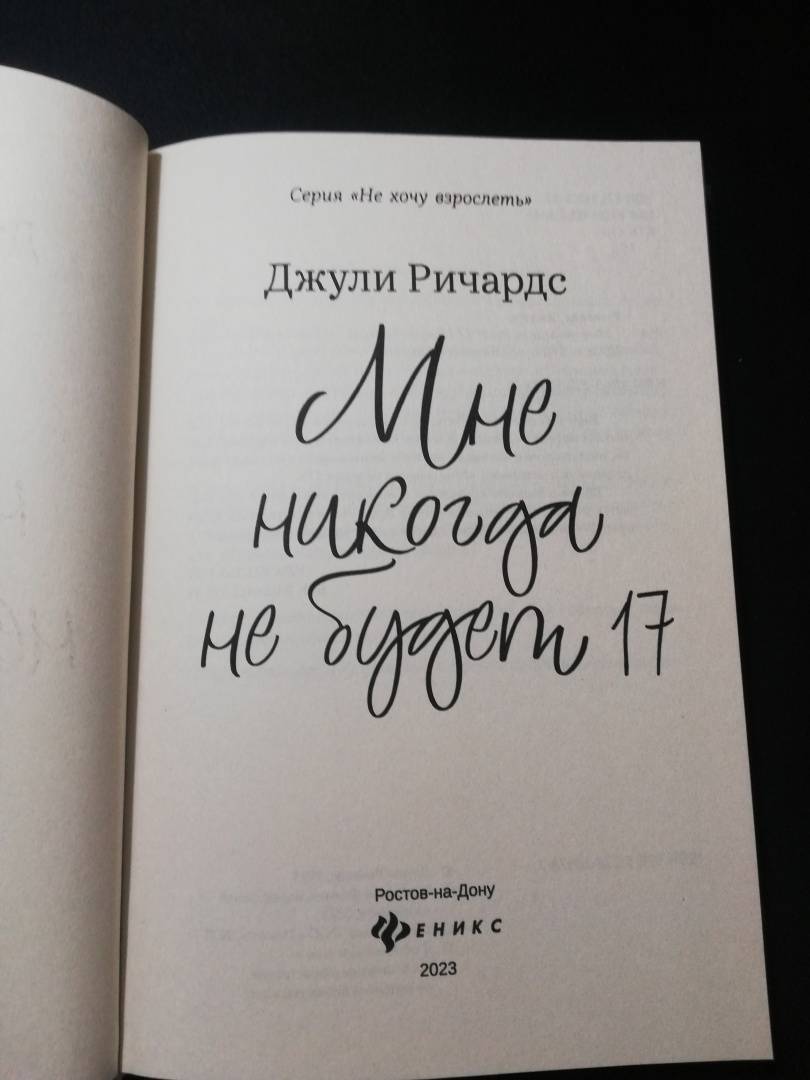 Серия «Не хочу взрослеть»
Джули Ричардс
Мне
никогда
не будет 17
Ростов-на-Дону
ФЕНИКС
2023